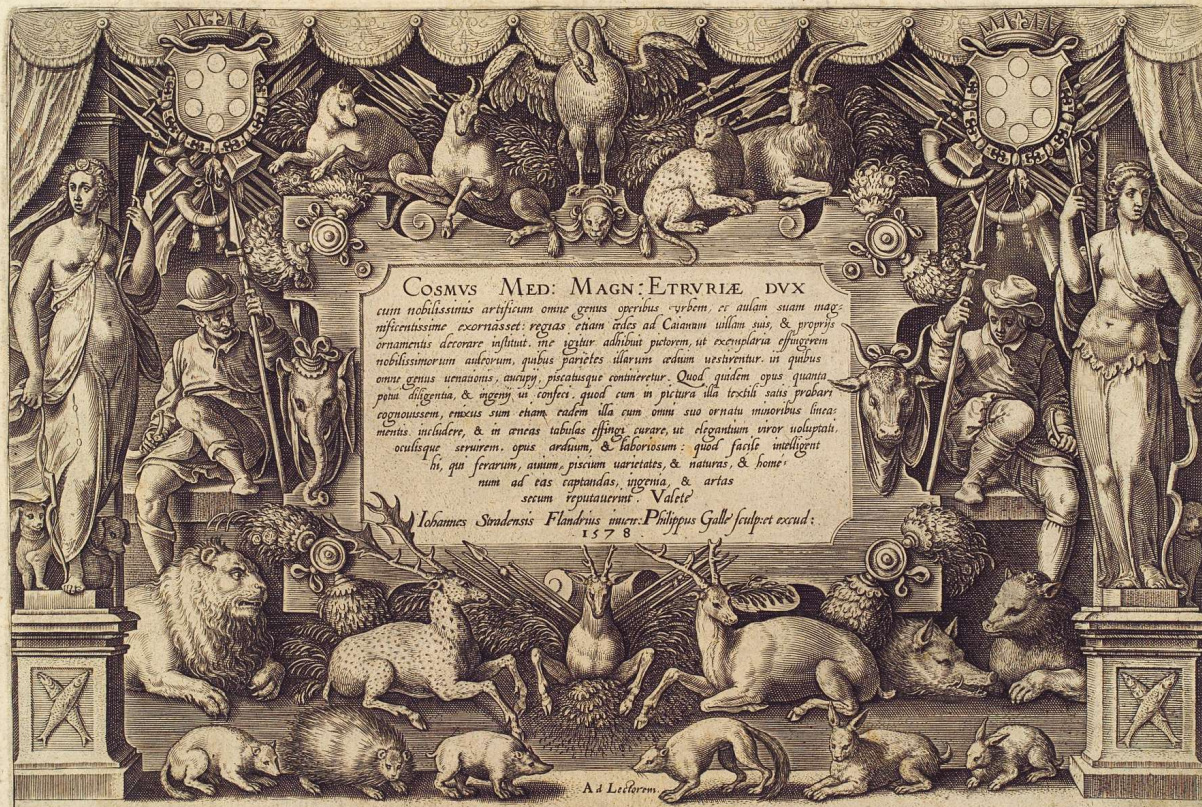 COSMVS MED: MAGN: ETRVRIÆ DVX
cum nobilissimis artificum omne genus operibus vrbem, et aulam suam mag-
nificentissime exornasset: regias etiam ædes ad Caianum uillam suis, & proprijs
ornamentis decorare instituit. me igitur adhibuit pictorem, ut exemplaria effingerem
nobilissimorum auleorum, quibus parietes illarum ædium uestirentur. in quibus
omne genus uenationis, aucupij, piscatusque contineretur. Quod quidem opus quanta
potui diligentia, & ingenij ui confeci. quod cum in pictura illa textili satis probari
cognouissem, enixus sum etiam eadem illa cum omni suo ornatu minoribus linea-
mentis includere, & in æneas tabulas effingi curare, ut elegantium viror voluptati,
oculisque seruirem. opus arduum, & laboriosum: quod facile intelligent
hi, qui ferarum, auium, piscium uarietates, & naturas, & homi-
num ad eas captandas, ingenia, & artas
secum reputauerint. Valete
Iohannes Stradensis Flandrius inuen: Philippus Galle sculp: et excud:
1578
Ad Lectorem.